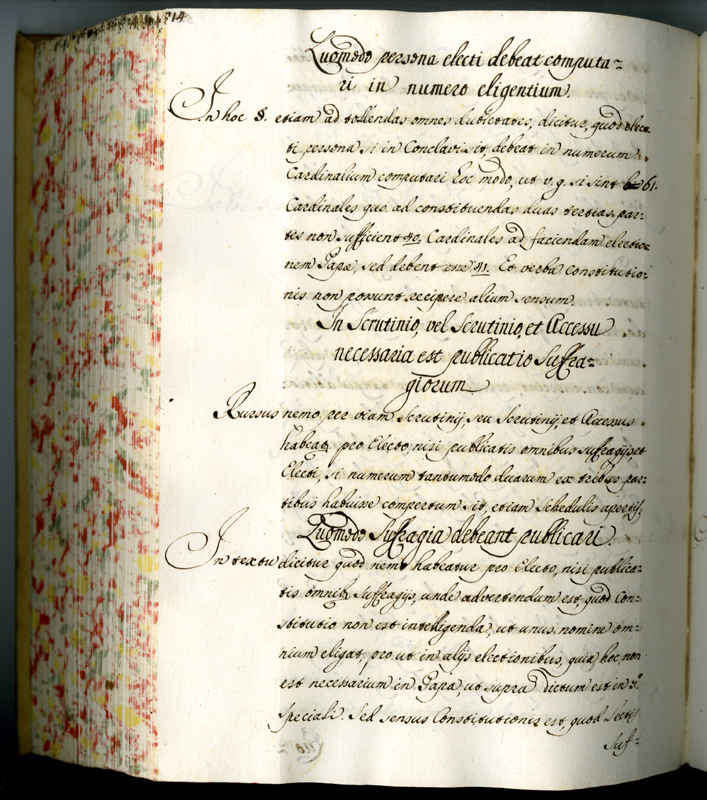 714
Quomodo persona electi debeat computa=
ri in numero eligentium.
In hoc §. etiam ad tollendas omnes dubietates, dicitur, quod elec=
ti persona si in Conclavi sit, debeat in numerum
Cardinalium computari hoc modo, ut v. g. si sint 61.
Cardinales quo ad constituendas duas tertias par=
tes non sufficient 40. Cardinales ad faciendam electio=
nem Papæ, sed debent 41. Et verba constitutio=
nis non possunt recipere alium sensum.
In Scrutinio, vel Scrutinio, et Accessu
necessaria est publicatio Suffra=
giorum
Rursus nemo per viam Scrutinij, seu Scrutinij, et Accessus
habeat. pro Electo, nisi publicatis omnibus suffragijs, et
Electi, si numerum tantumodo duarum ex tribus par=
tibus habuisse compertum sit, etiam schedulis apertis.
Quomodo Suffragia debeant publicari.
In textu dicitur quod nemo habeatur pro Electo, nisi publica=
tis omnib. Suffragijs, unde advertendum est, quod Con=
stitutio non est intelligenda, ut unus, nomine om=
nium eligat, pro ut in alijs electionibus, quia hoc, non
est necessarium in Papa ut supra dictum est in 3.º
speciali. Sed sensus Constitutionis est, quod Lectis
Suf=